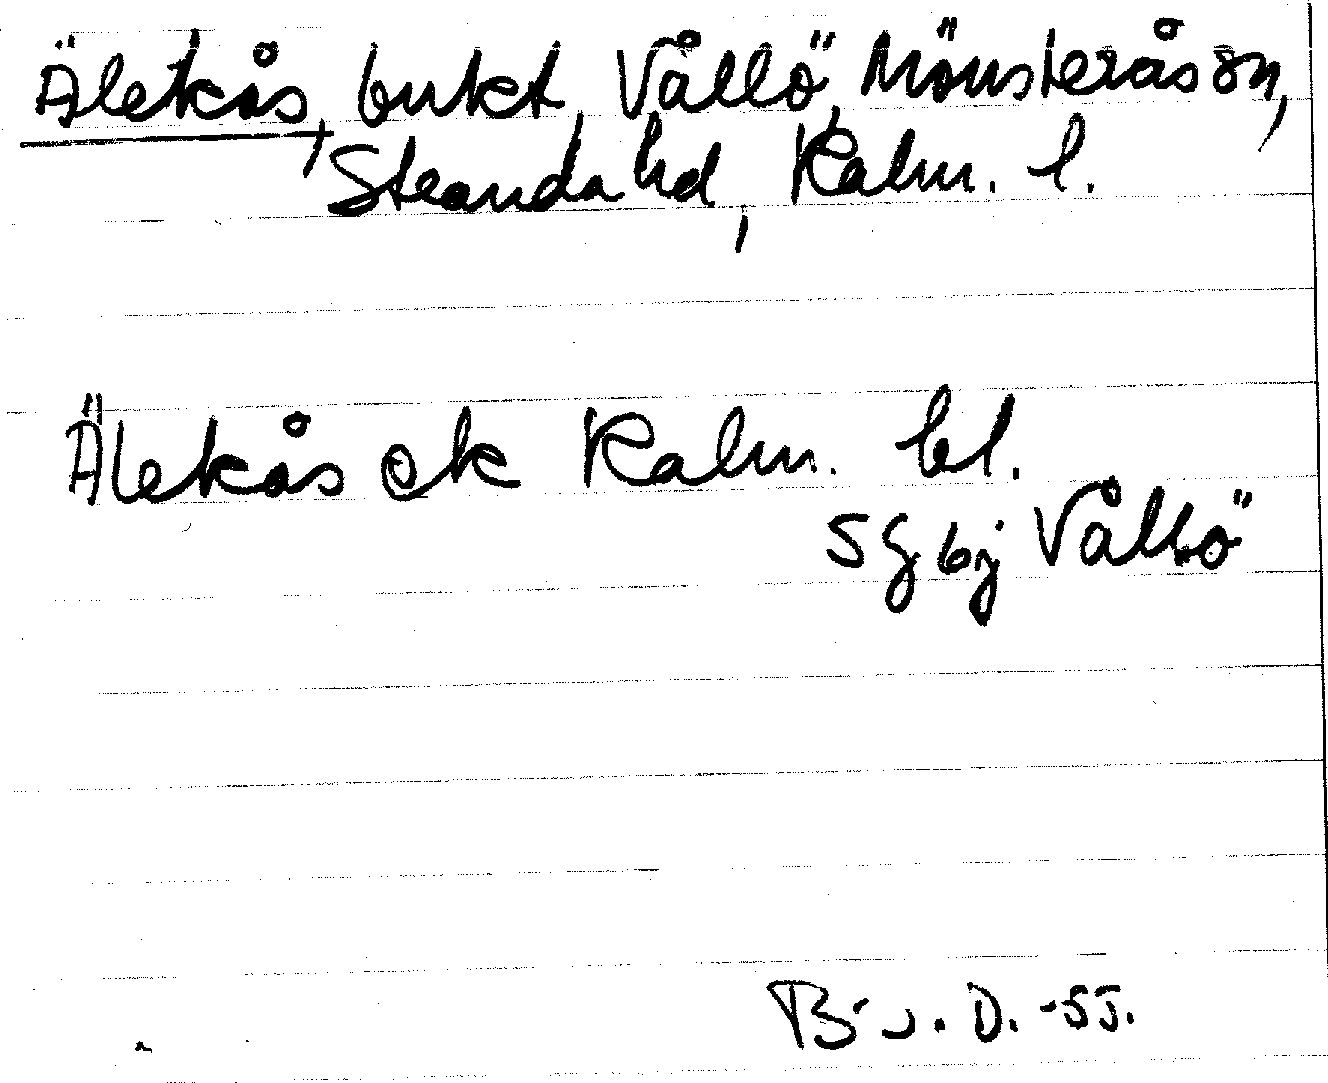 Älekås, bukt, Vållö, Mönsterås sn,
Stranda hd, Kalm. l.
Älekås ek Kalm. bl.
SG bj Vållö
B. v. D. -55.